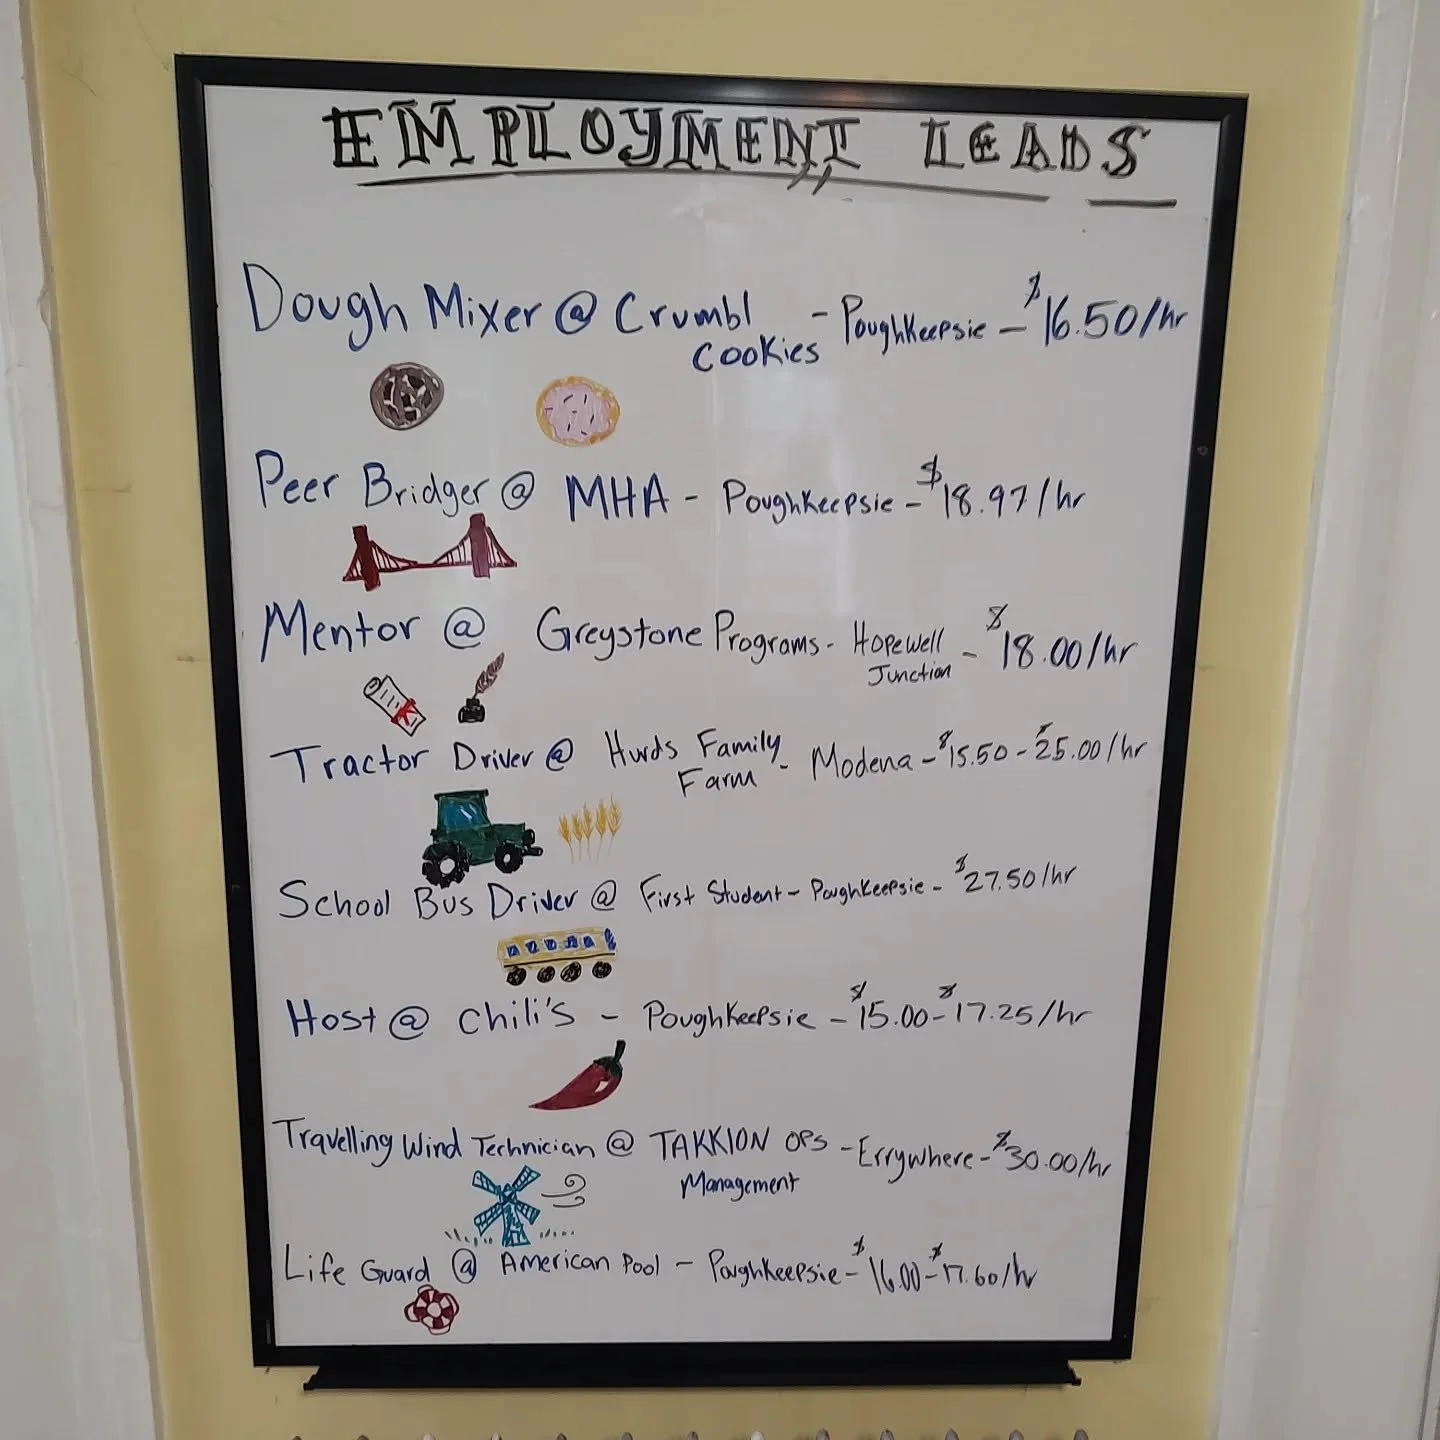 EMPLOYMENT LEADS
Dough Mixer @ Crumbl Cookies - Poughkeepsie - $16.50/hr
Peer Bridger @ MHA - Poughkeepsie - $18.97/hr
Mentor @ Greystone Programs - Hopewell Junction - $18.00/hr
Tractor Driver @ Hurds Family Farm - Modena - $15.50 - $25.00/hr
School Bus Driver @ First Student - Poughkeepsie - $27.50/hr
Host @ Chili's - Poughkeepsie - $15.00 - $17.25/hr
Travelling Wind Technician @ TAKKION OPS Management - Errywhere - $30.00/hr
Life Guard @ American Pool - Poughkeepsie - $16.00 - $17.60/hr